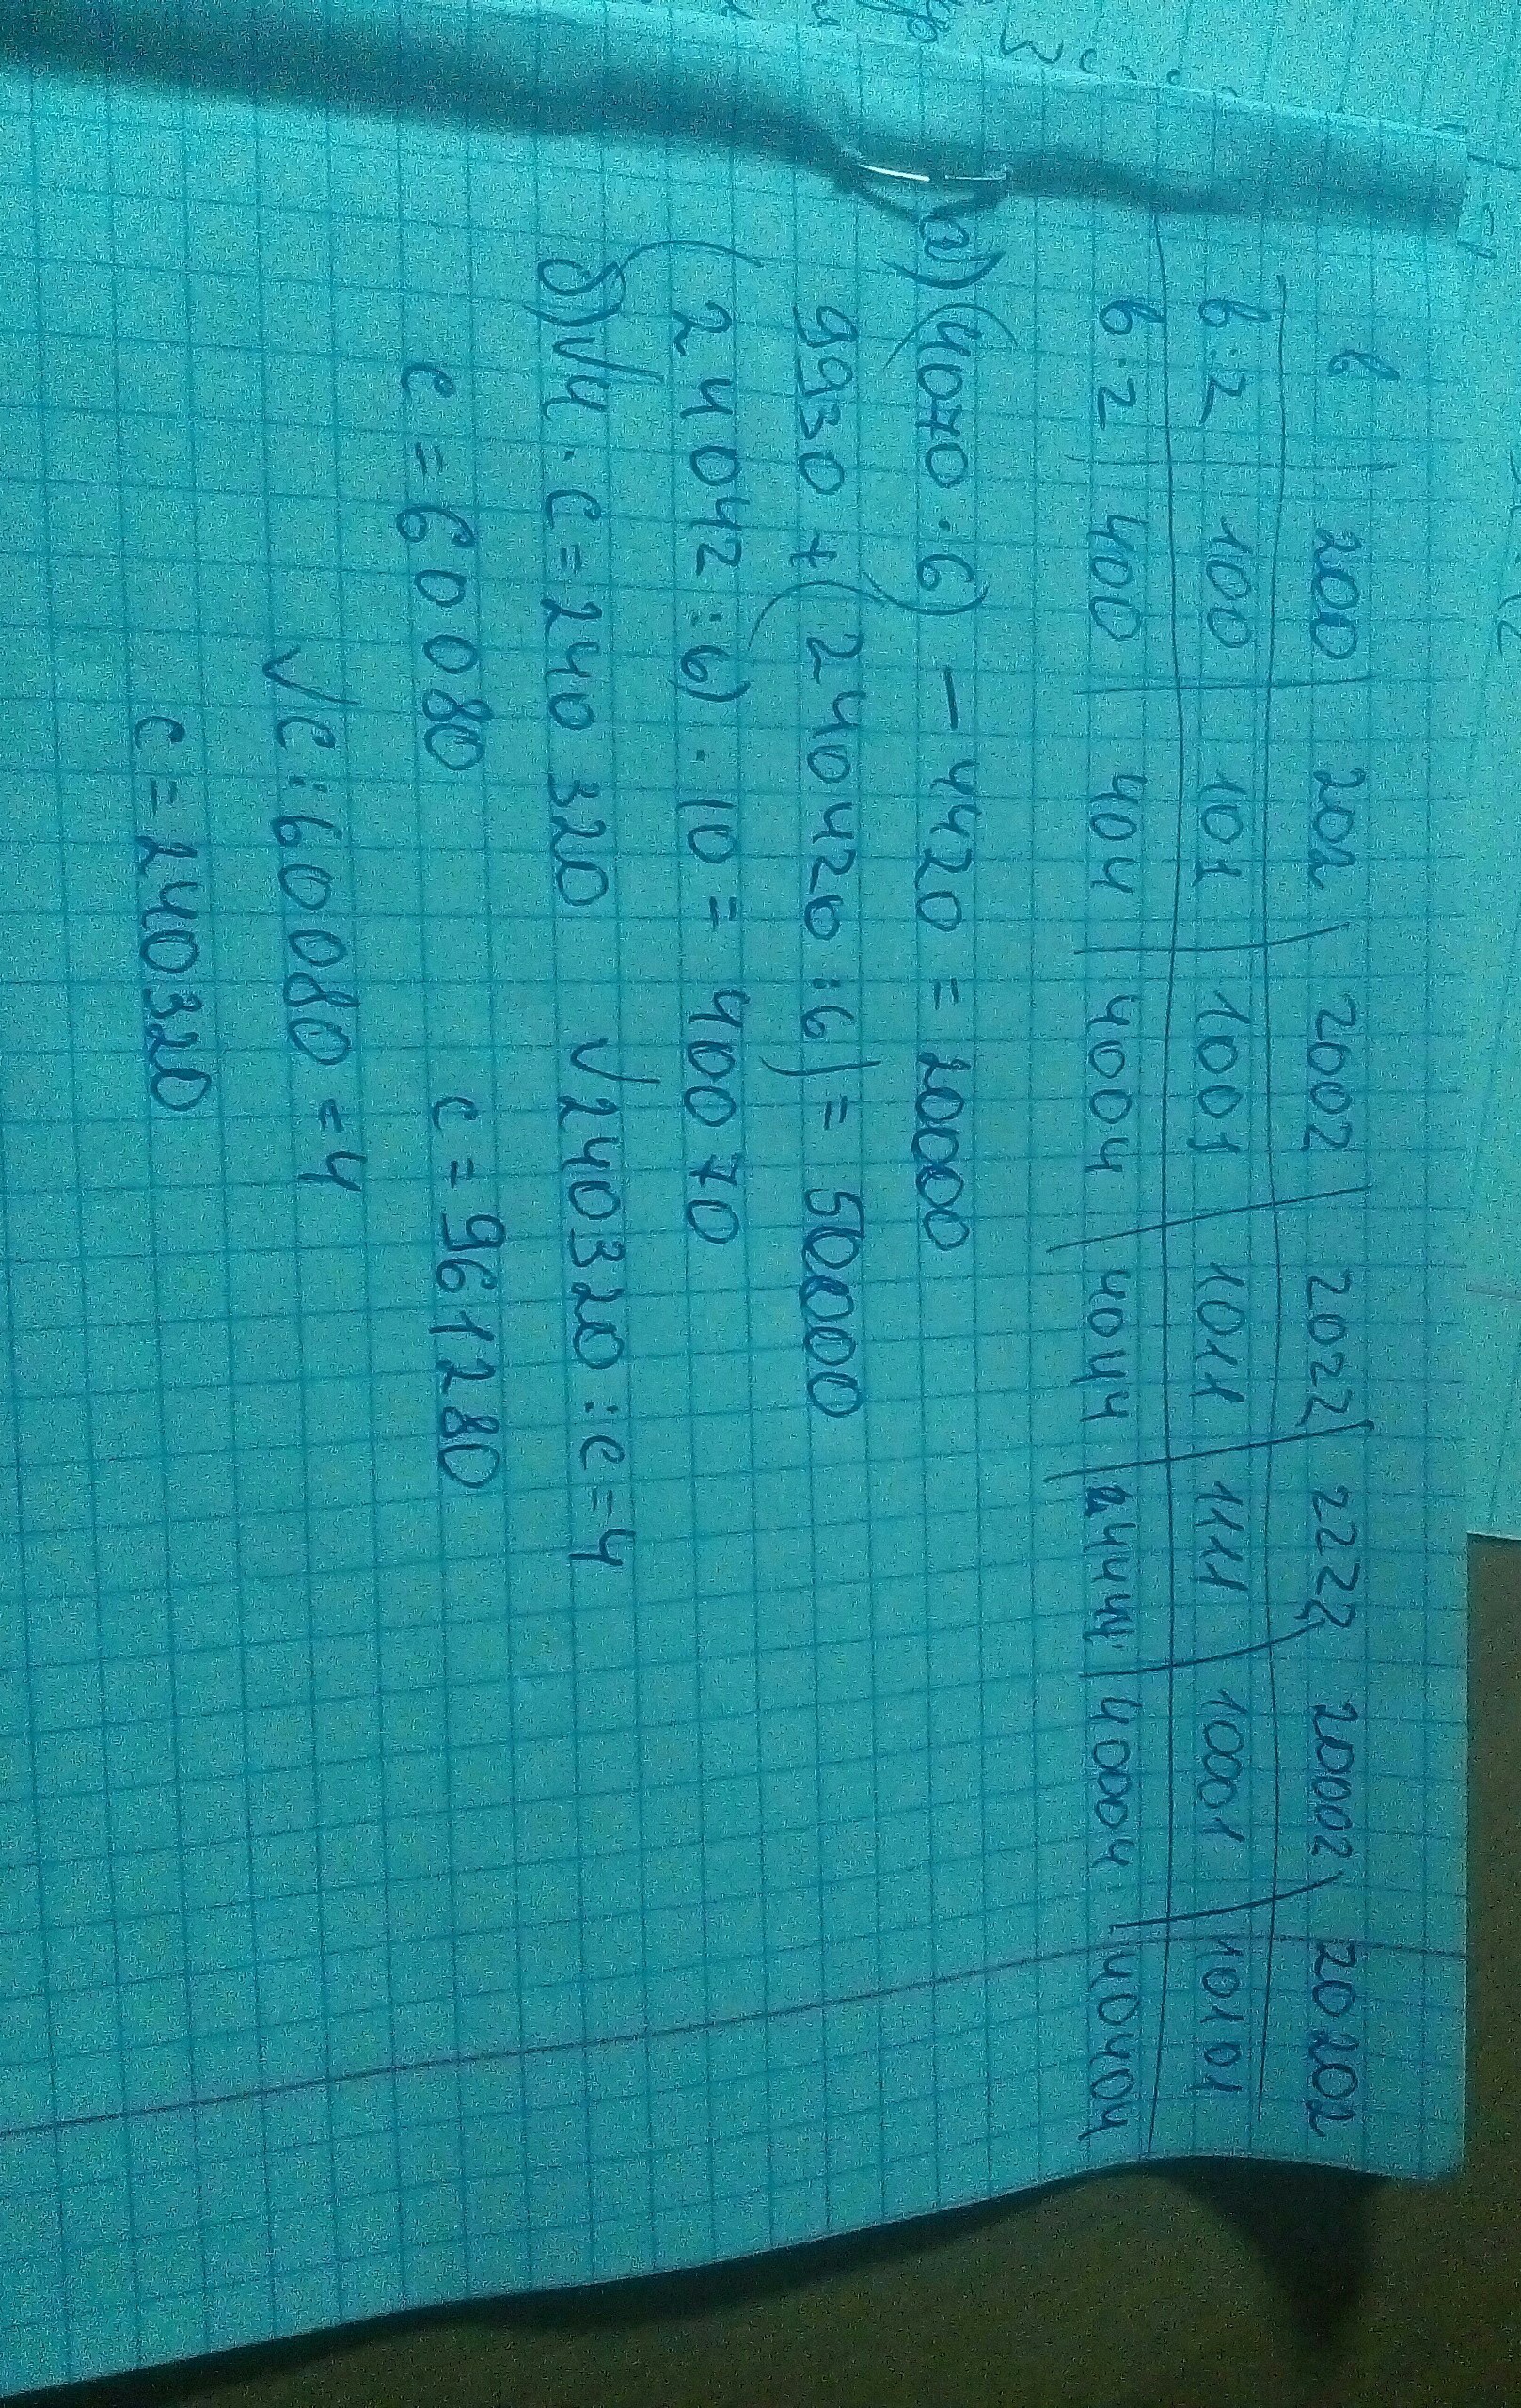 в 200 202 2002 2022 2222 20002 20202
в:2 100 101 1001 1011 1111 10001 10101
в:2 400 404 4004 4044 4444 40004 40404
а) (4070 · 6) - 4420 = 20000
9930 + (240420 : 6) = 50000
(24042 : 6) · 10 = 40070
б) √4 · c = 240 320 √240320 : c = 4
c = 60080 c = 961280
√c : 60080 = 4
c = 240320